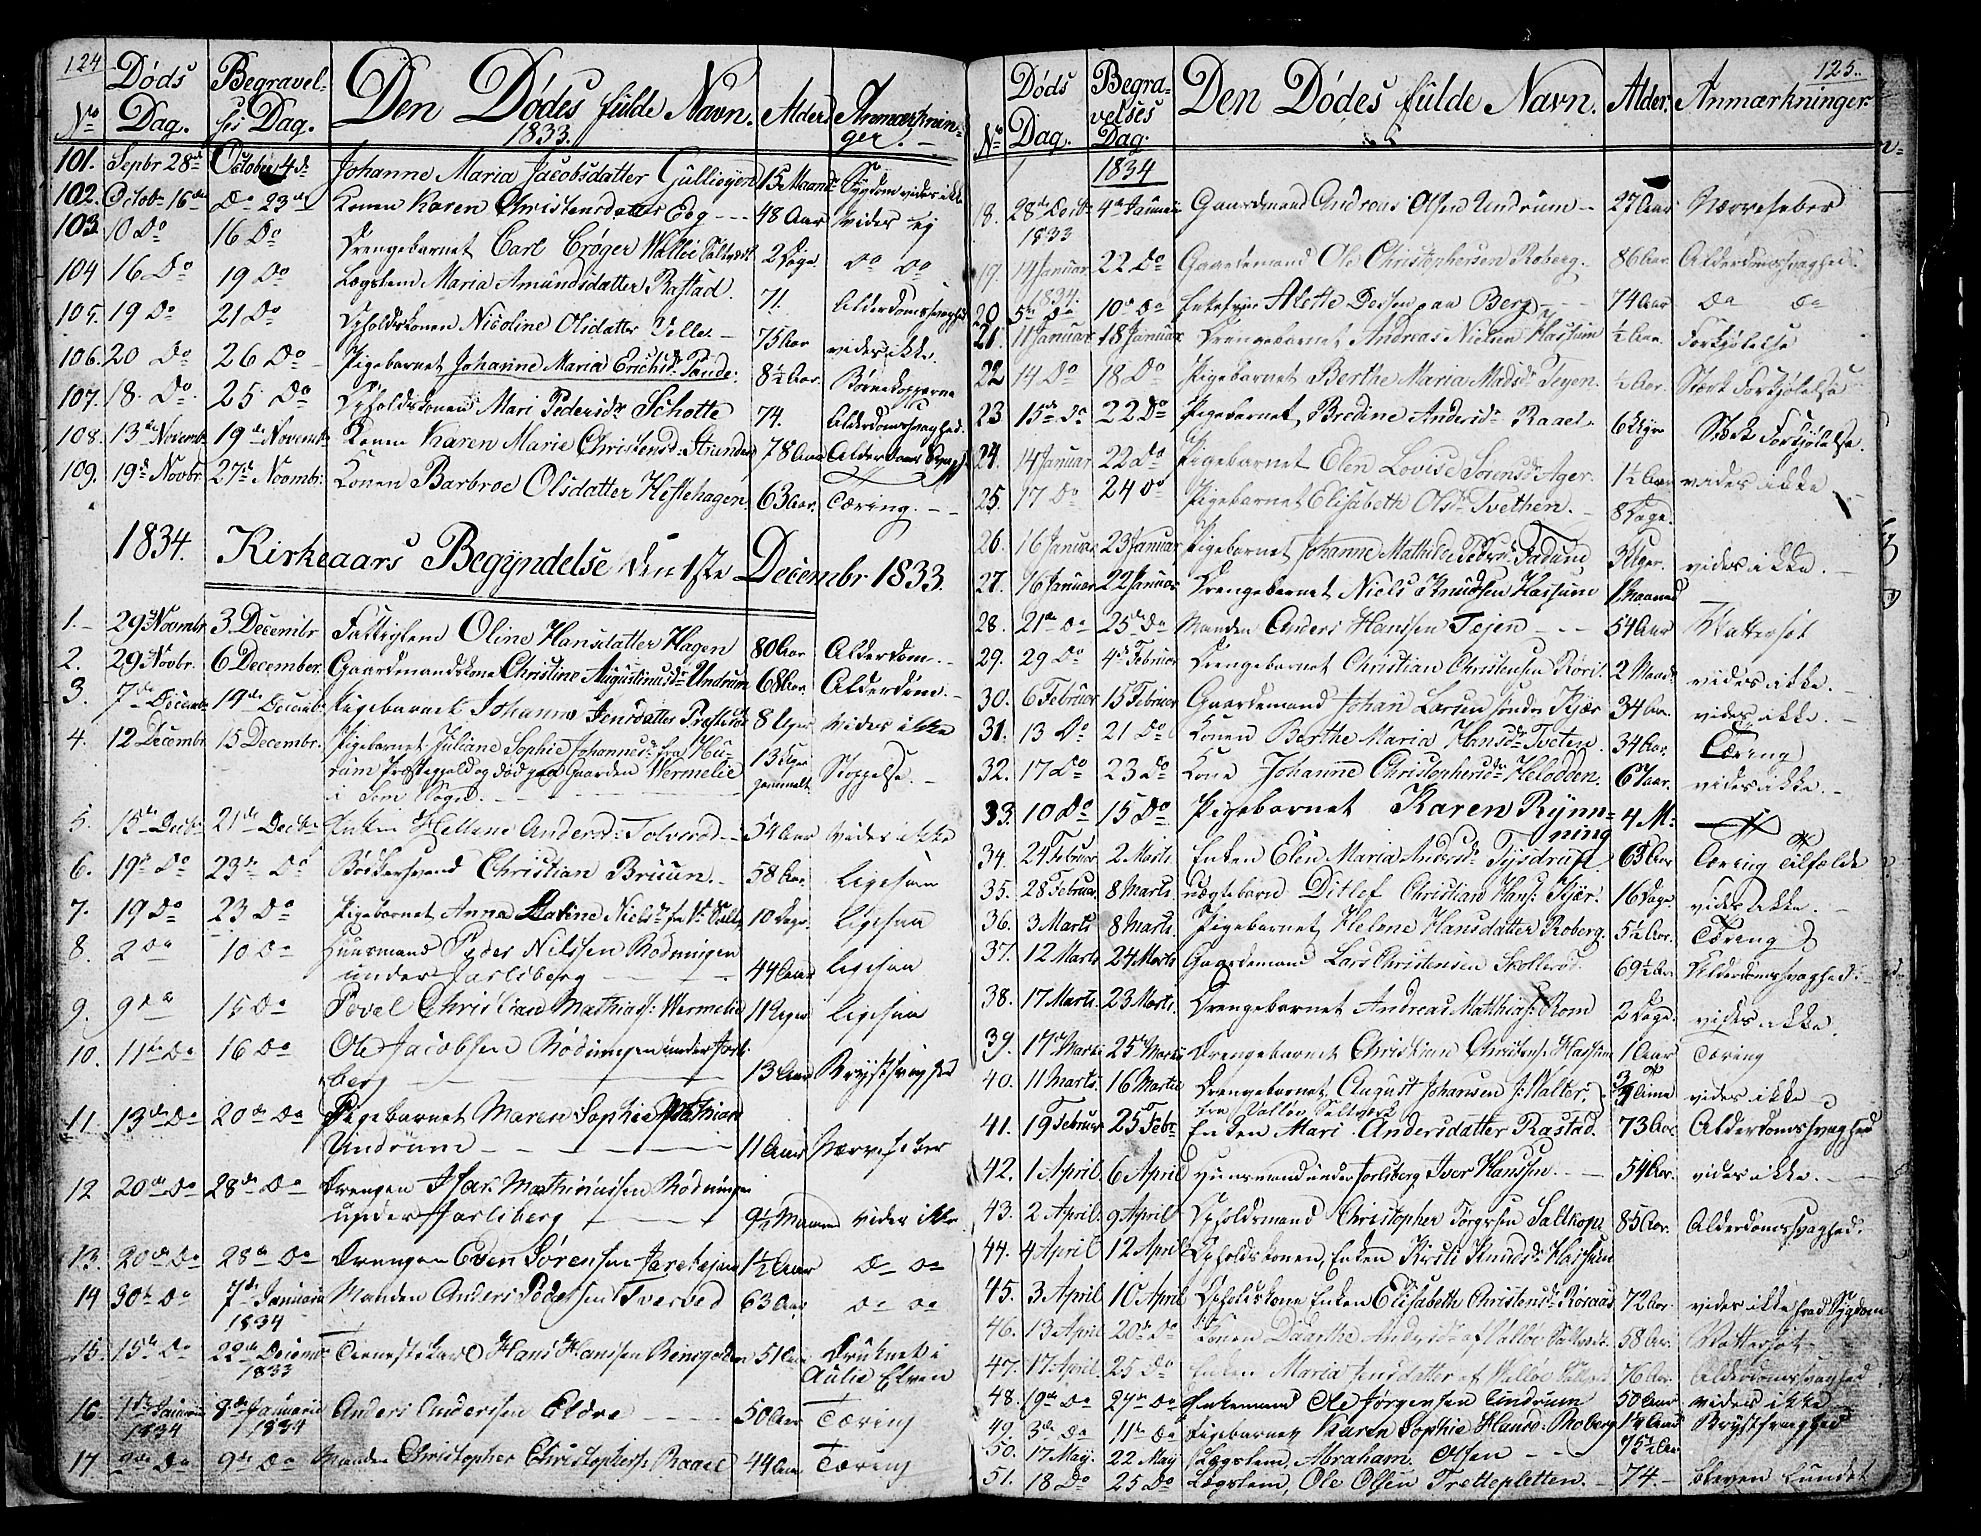 124
Døds Dag. Begravelses Dag. Den Dødes fulde Navn. Alder Anmærkninger.
No 1833.
101. Septbr 28de October 4de Johanne Maria Jacobsdatter Gullioyen 15 Maand Sygdom vides ikke
102. Octobr 16de Do 23de Konen Karen Christensdatter Eeg 48 Aar vides ej
103. 10 Do 16 Do Drengebarnet Carl Crøger Walløe Saltværk 2 Dage Do Do
104 16 Do 19 Do Lægslem Maria Amundsdatter Rastad. 71. Alderdomssvaghed
105. 19 Do 21 Do Opholdskonen Nicoline Olsdatter Velle. 75 Aar vides ikke.
106. 20 Do 26 Do Pigebarnet Johanne Maria Erichsdr Sande. 8½ Aar. Børnekopperne
107. 18. Do. 25 Do Opholdskonen Mari Pedersdr Schotte 74. Alderdomssvaghed.
108. 13de Novembr 19de Novembr Konen Karen Marie Christensd. Strunden 78 Aar Alderdoms Svagh
109. 19de Novbr. 27de Novmbr. Konen Barbroe Olsdatter Heslehagen 63 Aar. Tæring.
1834. Kirkeaars Begyndelse den 1ste Decembr 1833.
1. 29 Novmbr. 3 Decembr Fattiglem Oline Hansdatter Hagen 80 Aar Alderdom.
2. 29 Novbr. 6 December. Gaardmandskone Christine Augustinusdr Undrum 68 Aar. Alderdom.
3. 7de Decembr 14de Decembr Pigebarnet Johanne Jensdatter 8 Uger vides ikke
4. 12 Decembr 15 Decembr. Pigebarnet Juliane Sophie Johannesdr fra Hu-
rum Præstegjeld og død paa Gaarden Wermelie 13 Uger gammelt Stoppelse.
i Sem Sogn.
5. 15de Decbr 21de Decbr Enken Hellene Andersd: Tolvsrød 54 Aar vides ikke
6. 19de Do 23de Do Bødkersvend Christian Bruun. 58 Aar. Ligesaa
7. 19 Do 23 Do Pigebarnet Anna Karine Nielsdr fra Vs Salt. 10 Dage. Ligesaa
8. 2 Do 10 Do Huusmand Peder Nilssen Rødningen
under Jarlsberg 44 Aar Ligesaa
9. 9 Do 15 Do Povel Christian Mathias: Wermelie 11 Uger Ligesaa
10. 11te Do 16 Do Ole Jacobsen Rødningen under Jarls-
berg 13 Aar Brystsvaghed
11. 13de Do 20de Do Pigebarnet Maren Sophie Mathias
Undrum 11 Aar Nærvefeber
12 20de Do 28de Do Drengen Isac Mathiassen Rødningen
under Jarlsberg 9½ Maaned vides ikke
13. 20de Do 28de Do Drengen Even Sørensen 1½ Aar Do Do
14 30te Do 7de Januar 1834 Manden Anders Pedersen Tverved 63 Aar Do Do
15. 15de Do 22de Decembr 1833 Tjenestekarl Hans Hanssen 51 Aar Druknet i
Aulie Elven
16. 1ste Januar 1834 8de Januar 1834 Anders Andersen Eldre 50 Aar Tæring
17 9de Do Manden Christopher Christophers. Raael 44 Aar Tæring
125.
No Døds Dag. Begravelses Dag. Den Dødes fulde Navn. Alder. Anmærkninger.
1834
18. 28de Decbr 1833 4de Januar Gaardmand Andreas Olsen Undrum 27 Aar Nærvefeber
19. 14 Januar 1834. 22 Do Gaardemand Ole Christophersen Roberg. 86 Aar. Alderdomssvaghed.
20 5te Do 10de Do Enkefrue Alette paa Berg 74 Aar Do Do
21. 11 Januar. 18 Januar Drengebarnet Andreas Nielsen Hassum ½ Aar. Forkjølelse
22 14 Do 18 Do Pigebarnet Berthe Maria Madsdr Tejen. ½ Aar. Stærk Forkjølelse
23 15de Do 22 Do Pigebarnet Bredine Andersdr Raael. 6 Uger Stærk Forkjølelse.
24. 14 Januar. 22 Do Pigebarnet Elen Lovise Sørensdr Ager. 1½ Aar vides ikke
25. 17 Do 24 Do Pigebarnet Elisabeth Olsdr Tvethen. 8 Dage.
26. 16 Januar 23 Januar Pigebarnet Johanne Mathilde 3 Uger. vides ikke.
27. 16 Januar 22 Januar Drengebarnet Niels Knudsen Hassum 1 Maaned
28. 21de Do 25de Do Manden Anders Hanssen Tejen 54 Aar Vattersot
29. 29 Do 4de Februar Drengebarnet Christian Christensen Røril. 2 Maan. vides ikke.
30. 6 Februar 15 Februar Gaardemand Johan Larsen søndre Kjær 34 Aar. vides ikke.
31. 13 Do 21 Do Konen Berthe Maria Hansdr Tveten. 34 Aar. Tæring
32. 17 Do 23 Do Kone Johanne Christophersdr Helødden. 67 Aar. vides ikke.
33. 10 Do 15 Do Pigebarnet Karen Rynn-
ning 4 M.
34. 24 Februar 2 Marts Enken Elen Maria Andersdr 63 Aar Tæring Tilfælde
35. 28 Februar. 8 Marts uægtebarn Ditlef Christian Hans: Kjær. 16 Dage. vides ikke.
36. 3 Marts 8 Marts. Pigebarnet Helene Hansdatter Roberg. 5½ Aar. Tæring
37. 12 Marts 24 Marts Gaardemand Lars Christensen Skollerød 69½ Aar. Alderdomssvaghed.
38. 17 Marts. 23 Marts. Drengebarnet Andreas Matthias: Rom 2 Dage. vides ikke.
39. 14de Marts 25de Marts Drengebarnet Christian Christens. Hassum 1 Aar Tæring
40. 11 Marts. 16 Martie Drengebarnet August Johansen vides ikke
fra Walløe Saltværk
41. 19 Februar 25 Febr Enken Mari Andersdatter Rastad 73 Aar Alderdomssvaghed
42. 1 April. 6 April Huusmand under Jarlsberg Iver Hanssen. 54 Aar. vides ikke.
43. 2 April. 9 April Opholdsmand Christopher Saltkop. 85 Aar. Alderdomssvaghed.
44. 4 April 12 April Opholdskonen, Enken Kirsti Knudsdr Hassum
45. 3 April 10 April Opholdskone Enken Elisabeth Christensdr 72 Aar. vides ikke hvad Sygdom
46. 13 April 20de Do Konen Andersdr af Valløe Saltværk. 58 Aar. Vattersot
47. 17 April. 25 Do Enken Maria Jensdatter af Valløe 76 Aar. Alderdomssvaghed
48. 19de Do 27de Do Enkemand Ole Jørgensen Undrum 50 Aar vides ikke
49. 3de Do 11te Do Pigebarnet Karen Sophie Hansd: Roberg 1¼ Aar Brystsvaghed
50. 17 May. 22 May Lægslem, Abraham Olsen 75½ Aar
51. 18 Do 25 Do Lægslem, Ole Olsen Trettepletten. 74. bleven fundet